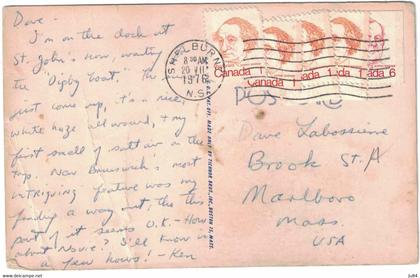 Dave -
I'm on the dock at
St. John's now, waiting for
the "Digby boat". The sun's
just come up, it's a nice,
white haze all around, & my
first smell of salt air on the
trip. New Brunswick's most
intriguing feature was my
finding a way out, tho this
part of it seems O.K. - How
about Novie? I'll know in
a few hours! - Ken
SHELBURNE
8 30 AM
20 VII
1976
N.S.
Canada 1
Canada 1
Canada 1
Canada 1
Canada 6
Dave Labossiere
Brook St.
Marlboro
Mass.
USA